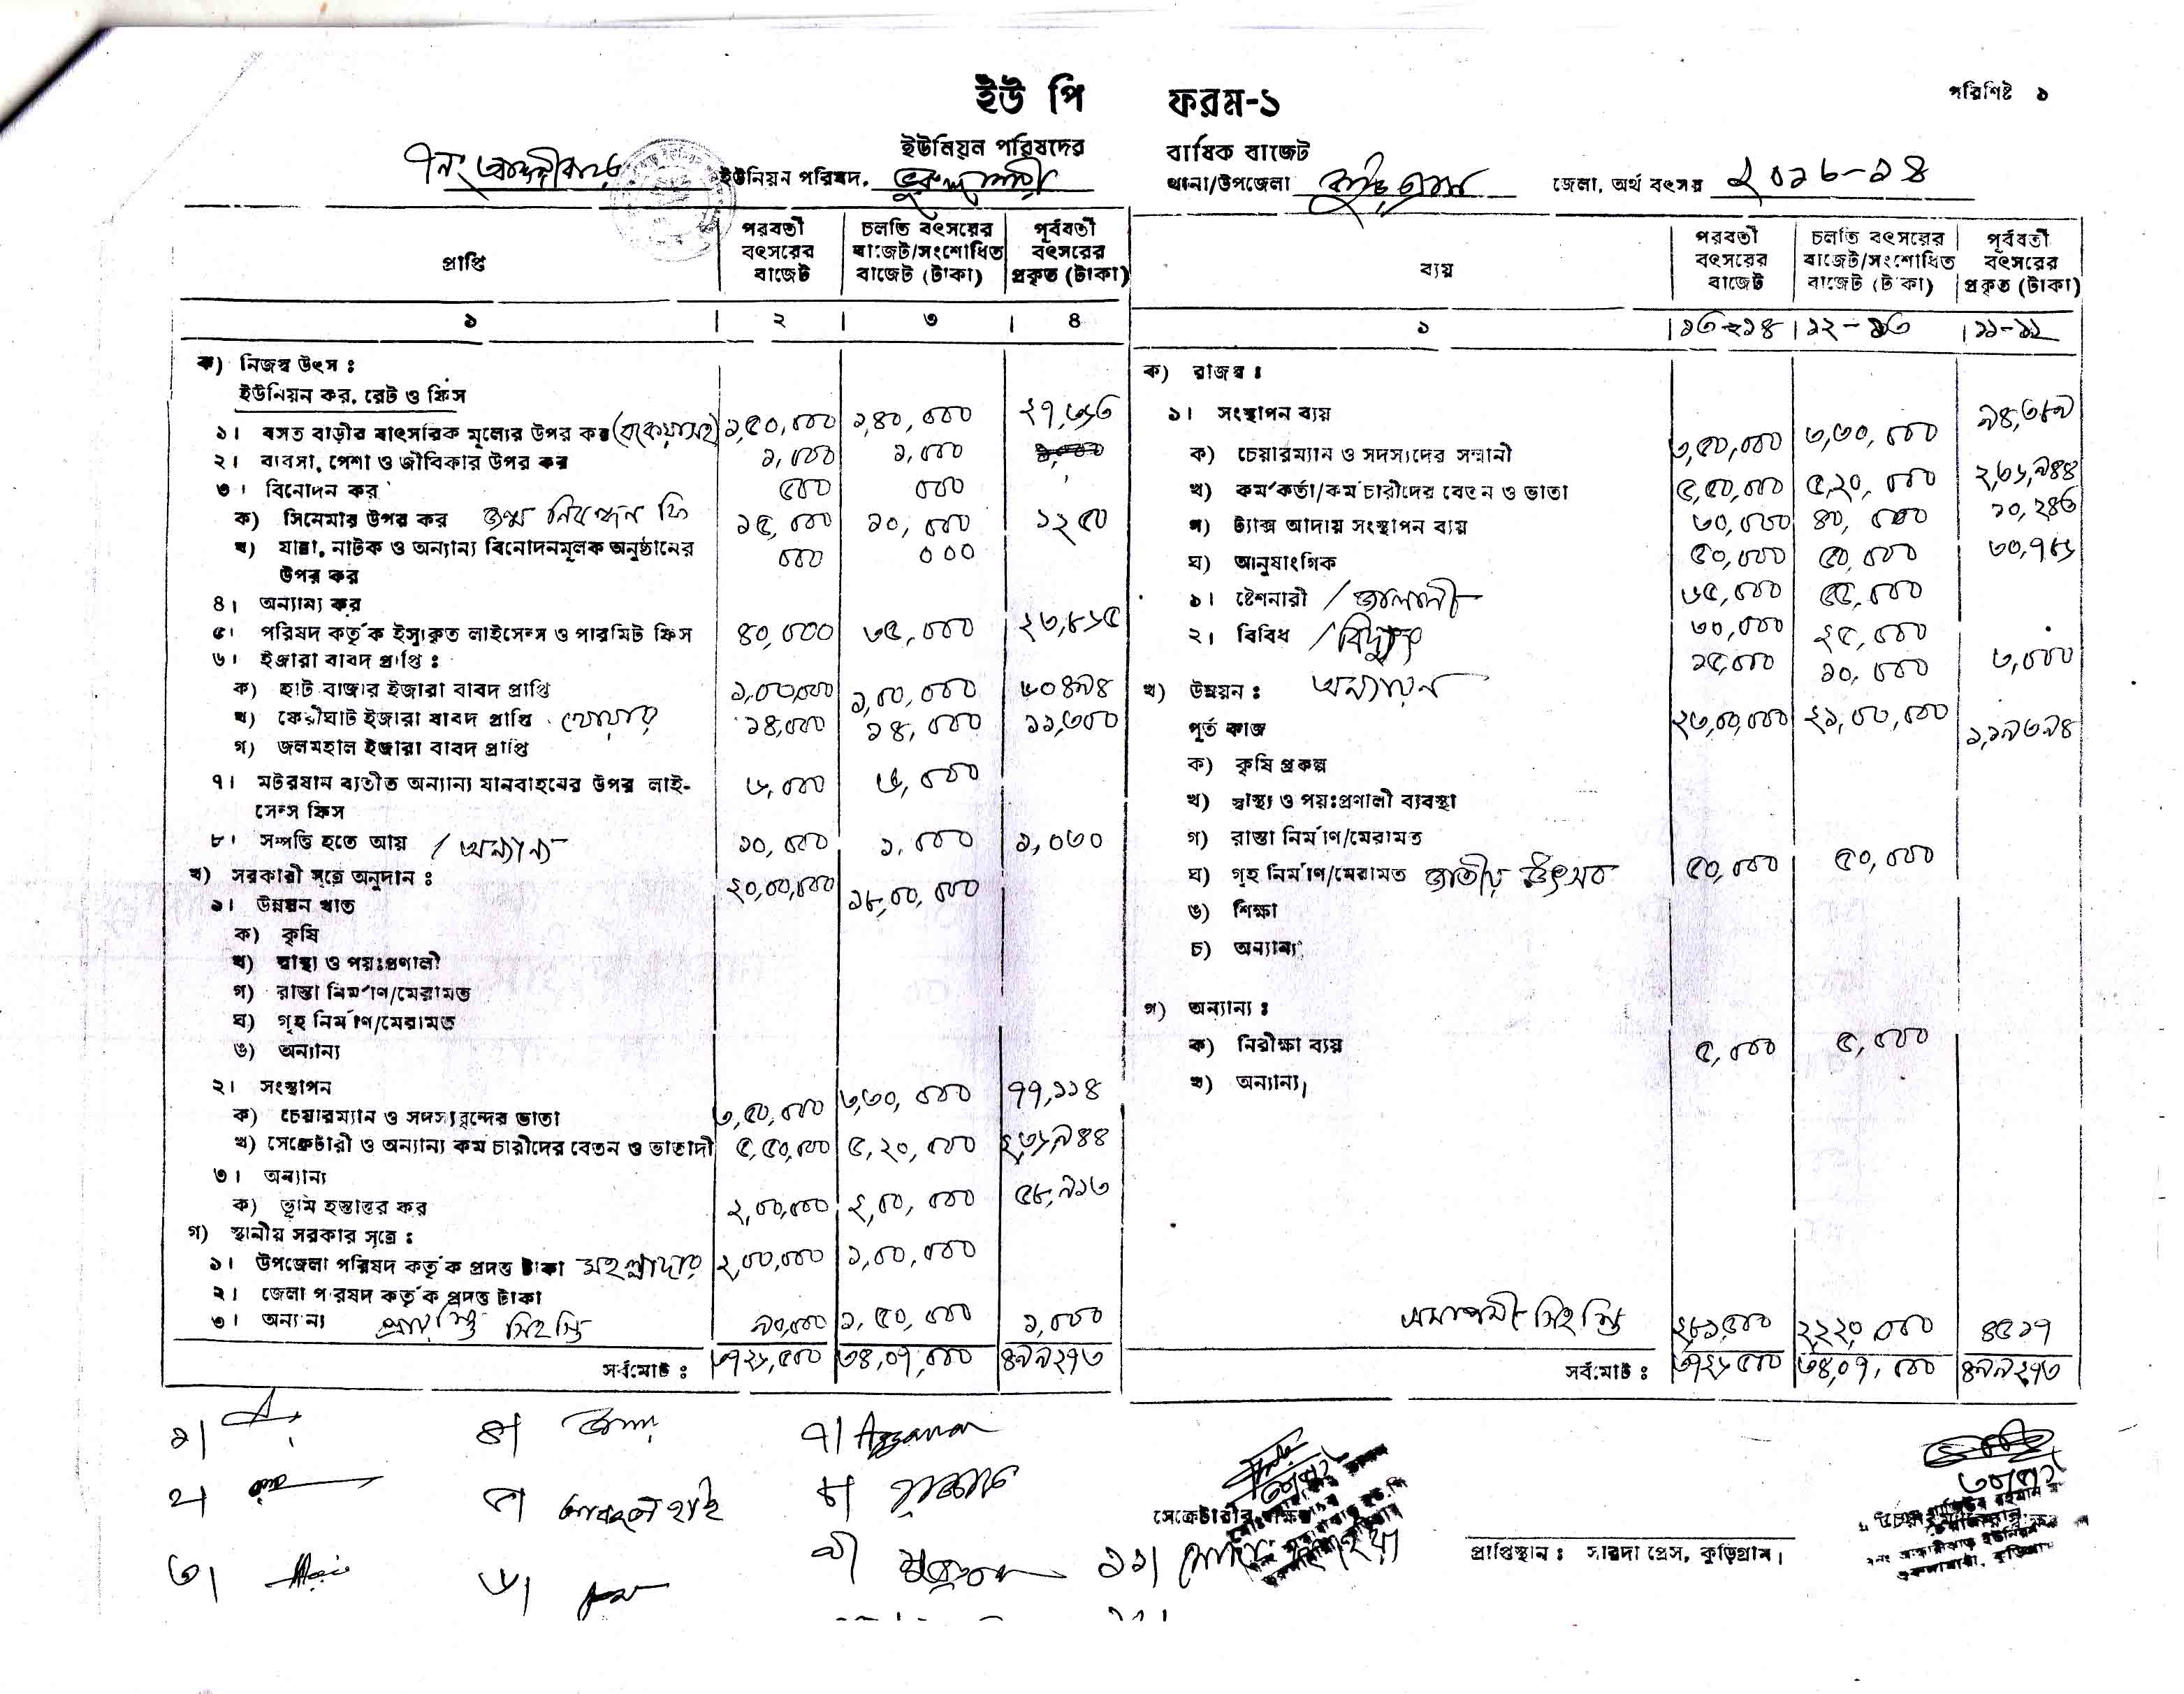 পরিশিষ্ট ১
ইউ পি ফরম-১
ইউনিয়ন পরিষদের বার্ষিক বাজেট
৭নং ইউনিয়ন পরিষদ, থানা/উপজেলা কুড়িগ্রাম জেলা, অর্থ বৎসর ২০১৩-১৪
প্রাপ্তি
পরবর্তী বৎসরের বাজেট
চলতি বৎসরের বাজেট/সংশোধিত বাজেট (টাকা)
পূর্ববর্তী বৎসরের প্রকৃত (টাকা)
১ ২ ৩ ৪
ক) নিজস্ব উৎস ঃ
ইউনিয়ন কর, রেট ও ফিস
১। বসত বাড়ীর বাৎসরিক মূল্যের উপর কর (বকেয়াসহ) ১,৫০,০০০ ১,৪০,০০০
২। ব্যবসা, পেশা ও জীবিকার উপর কর ১,০০০ ১,০০০
৩। বিনোদন কর ৫০০ ০০০
ক) সিনেমার উপর কর জন্ম নিবন্ধন ফি ১৫,০০০ ১০,০০০ ১২৫০
খ) যাত্রা, নাটক ও অন্যান্য বিনোদনমূলক অনুষ্ঠানের ০০০ ০০০
উপর কর
৪। অন্যান্য কর
৫। পরিষদ কর্তৃক ইস্যুকৃত লাইসেন্স ও পারমিট ফিস ৪০,০০০ ৩৫,০০০ ২৩,৮৬৫
৬। ইজারা বাবদ প্রাপ্তি ঃ
ক) হাট বাজার ইজারা বাবদ প্রাপ্তি ১,০০,০০০ ১,০০,০০০ ৬০৪৯৪
খ) ফেরীঘাট ইজারা বাবদ প্রাপ্তি খোয়াড় ১৪,০০০ ১৪,০০০ ১১,৩০০
গ) জলমহাল ইজারা বাবদ প্রাপ্তি
৭। মটরযান ব্যতীত অন্যান্য যানবাহনের উপর লাই- ৬,০০০ ৬,০০০
সেন্স ফিস
৮। সম্পত্তি হতে আয় / অন্যান্য ১০,০০০ ১,০০০ ১,০৩০
খ) সরকারী সূত্রে অনুদান ঃ ২০,০০,০০০ ১৮,০০,০০০
১। উন্নয়ন খাত
ক) কৃষি
খ) স্বাস্থ্য ও পয়ঃপ্রণালী
গ) রাস্তা নির্মাণ/মেরামত
ঘ) গৃহ নির্মাণ/মেরামত
ঙ) অন্যান্য
২। সংস্থাপন
ক) চেয়ারম্যান ও সদস্যবৃন্দের ভাতা ৩,৫০,০০০ ৩,৩০,০০০ ৭৭,১১৪
খ) সেক্রেটারী ও অন্যান্য কর্মচারীদের বেতন ও ভাতাদী ৫,৫০,০০০ ৫,২০,০০০ ২,৩৬,৯৪৪
৩। অন্যান্য
ক) ভূমি হস্তান্তর কর ২,০০,০০০ ২,০০,০০০ ৫৮,৯১৩
গ) স্থানীয় সরকার সূত্রে ঃ
১। উপজেলা পরিষদ কর্তৃক প্রদত্ত টাকা ২,০০,০০০ ১,০০,০০০
২। জেলা পরিষদ কর্তৃক প্রদত্ত টাকা
৩। অন্যান্য প্রারম্ভি স্থিতি ৯০,০০০ ১,৫০,০০০ ১,০০০
সর্বমোট ঃ ৩৭২৬,৫০০ ৩৪,০৭,০০০ ৪৯৯২৭৩
ব্যয়
পরবর্তী বৎসরের বাজেট
চলতি বৎসরের বাজেট/সংশোধিত বাজেট (টাকা)
পূর্ববর্তী বৎসরের প্রকৃত (টাকা)
১ ১৩-১৪ ১২-১৩ ১১-১২
ক) রাজস্ব ঃ
১। সংস্থাপন ব্যয়
ক) চেয়ারম্যান ও সদস্যদের সম্মানী ৩,৫০,০০০ ৩,৩০,০০০
খ) কর্মকর্তা/কর্মচারীদের বেতন ও ভাতা ৫,৫০,০০০ ৫,২০,০০০ ২,৩৬,৯৪৪
গ) ট্যাক্স আদায় সংস্থাপন ব্যয় ৩০,০০০ ৪০,০০০ ১০,২৪৩
ঘ) আনুষাংগিক ৫০,০০০ ৫০,০০০ ৩০,৭৮৬
১। ষ্টেশনারী / জালানী ৬৫,০০০ ৫৫,০০০
২। বিবিধ / বিদ্যুৎ ৩০,০০০ ২৫,০০০
খ) উন্নয়ন ঃ অন্যান্য ১৫,০০০ ১০,০০০ ৩,০০০
পূর্ত কাজ ২৩,০০,০০০ ২১,০০,০০০ ১,১৯৩৯৪
ক) কৃষি প্রকল্প
খ) স্বাস্থ্য ও পয়ঃপ্রণালী ব্যবস্থা
গ) রাস্তা নির্মাণ/মেরামত
ঘ) গৃহ নির্মাণ/মেরামত জাতীয় উৎসব ৫০,০০০ ৫০,০০০
ঙ) শিক্ষা
চ) অন্যান্য
গ) অন্যান্য ঃ
ক) নিরীক্ষা ব্যয় ৫,০০০ ৫,০০০
খ) অন্যান্য
সমাপনী স্থিতি ২৮১৫০০ ২,২২,০০০ ৪৫১৭
সর্বমোট ঃ ৩৭২৬৫০০ ৩৪,০৭,০০০ ৪৯৯২৭৩
১| ৪| ৭|
২| ৫| আবদুল হাই ৮|
৩| ৬| ৯| ১১|
সেক্রেটারীর
প্রাপ্তিস্থান ঃ সারদা প্রেস, কুড়িগ্রাম।